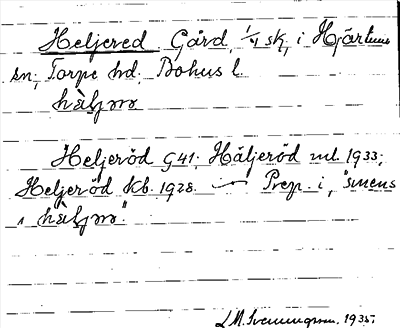 Heljered Gård, 1/4 sk, i Hjärtums
sn; Torpe hd. Bohus l.
Heljeröd G41. Häljeröd ml. 1933;
Heljeröd Kb. 1928. — Prep. i, "smens
i
L M. Svenungsson. 1935.